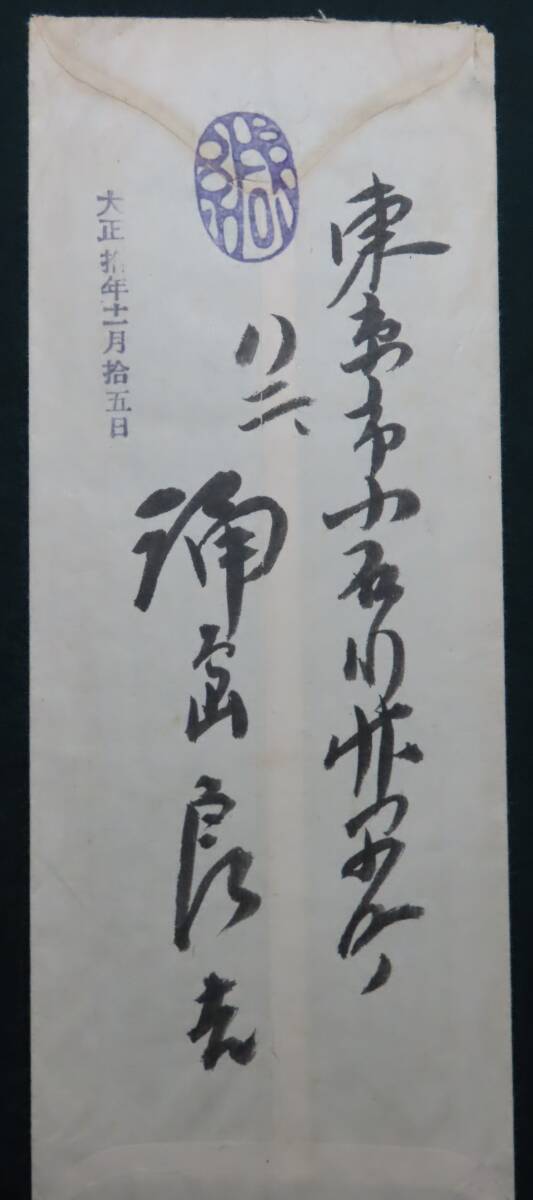 東京市小石川竹早町
八二
島良
緘
大正拾年十一月拾五日